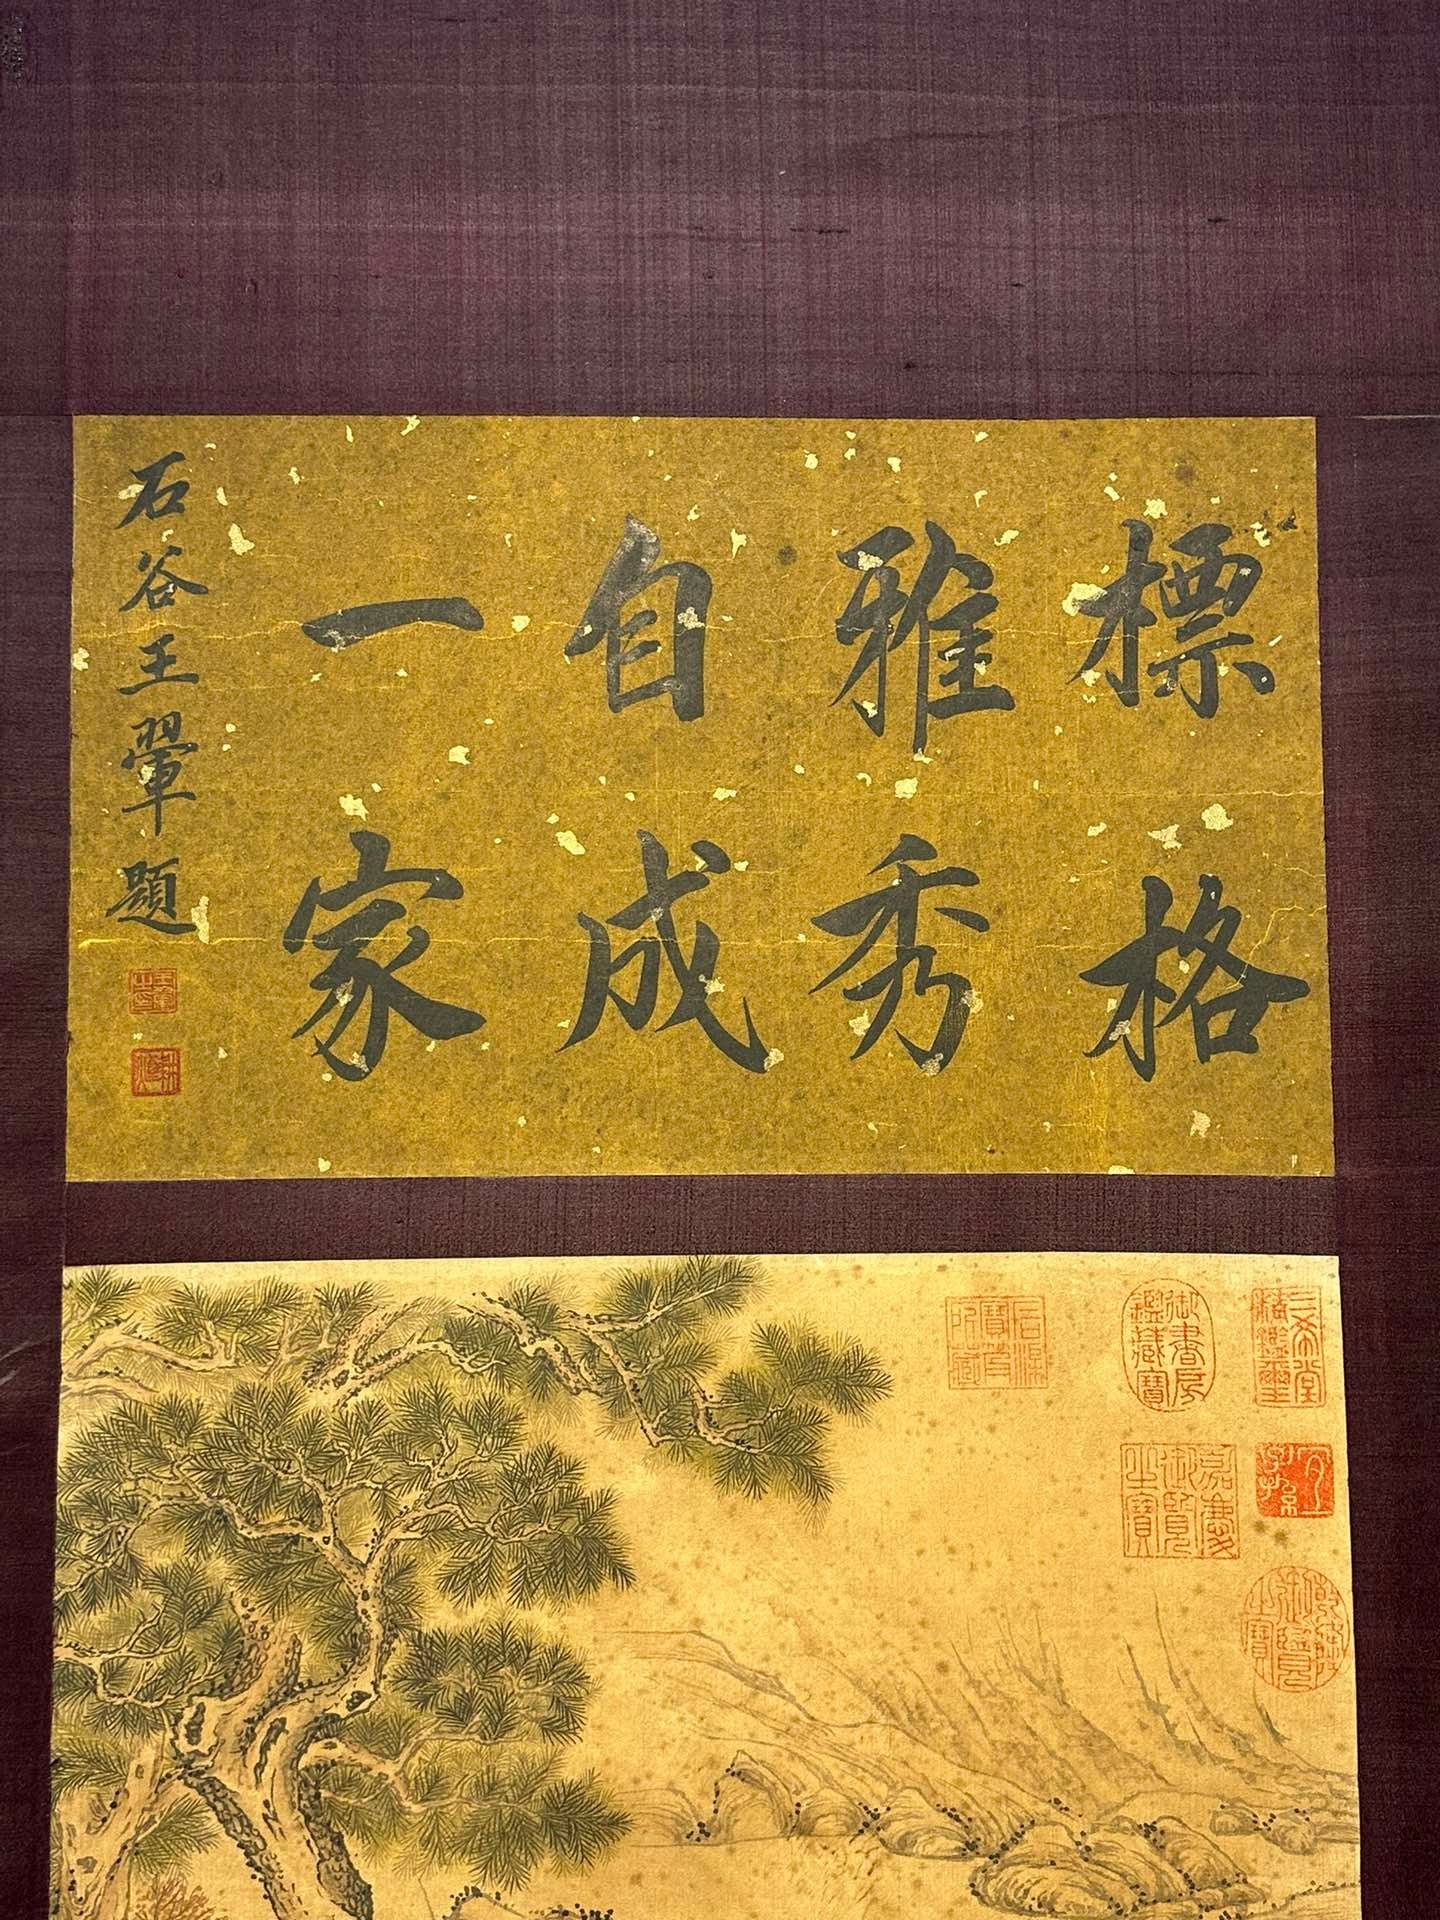 標格
雅秀
自成
一家
石谷王翬題
王翬之印
石渠寶笈所藏
御書房鑑藏寶
三希堂精鑑璽
宜子孫
嘉慶御覽之寶
乾隆御覽之寶